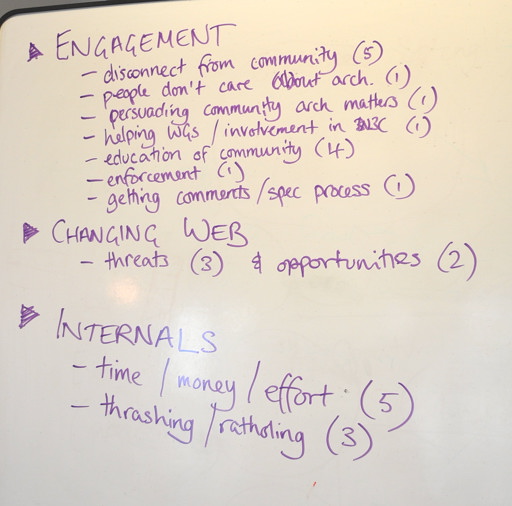 ENGAGEMENT
- disconnect from community (5)
- people don't care about arch. (1)
- persuading community arch matters (1)
- helping WGs / involvement in W3C (1)
- education of community (4)
- enforcement (1)
- getting comments / spec process (1)
CHANGING WEB
- threats (3) & opportunities (2)
INTERNALS
- time / money / effort (5)
- thrashing / ratholing (3)